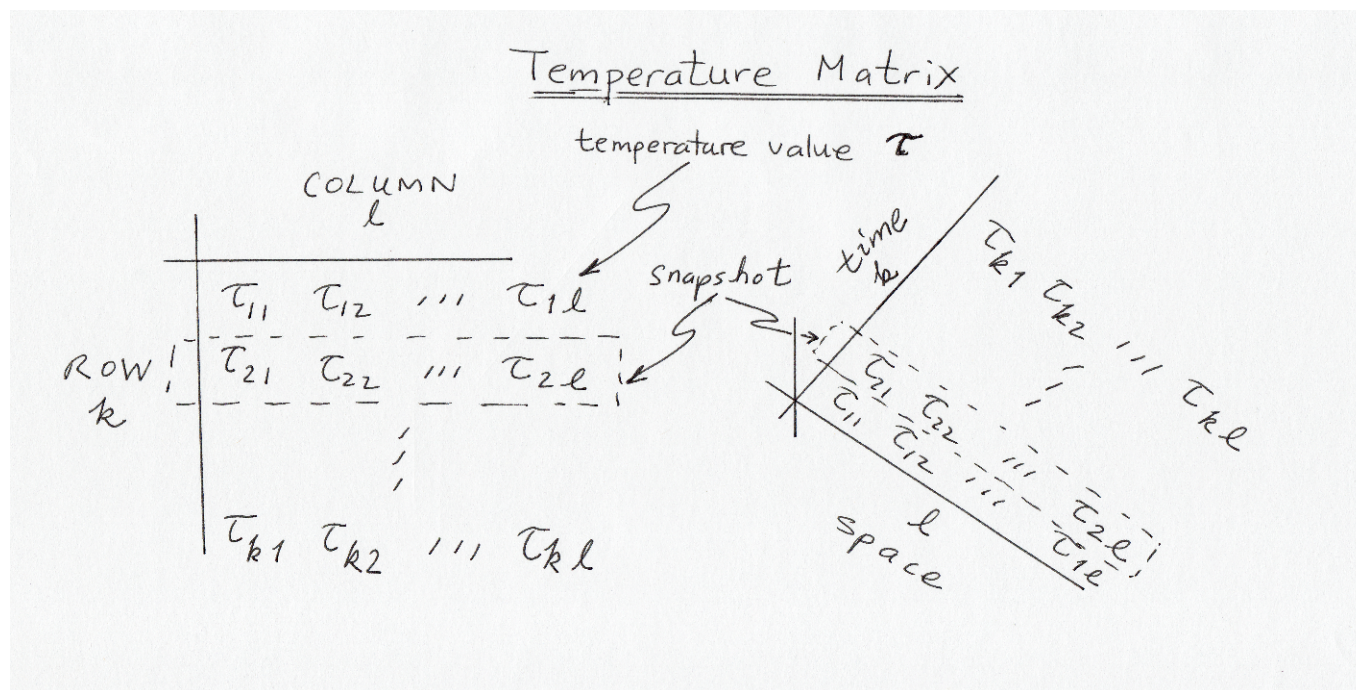 Temperature Matrix
temperature value τ
COLUMN
l
τ11 τ12 ,,, τ1l
ROW
k
τ21 τ22 ,,, τ2l
τk1 τk2 ,,, τkl
snapshot
time
k
τk1 τk2 ,,, τkl
τ21 τ22 ,,, τ2l
τ11 τ12 ,,, τ1l
l
space